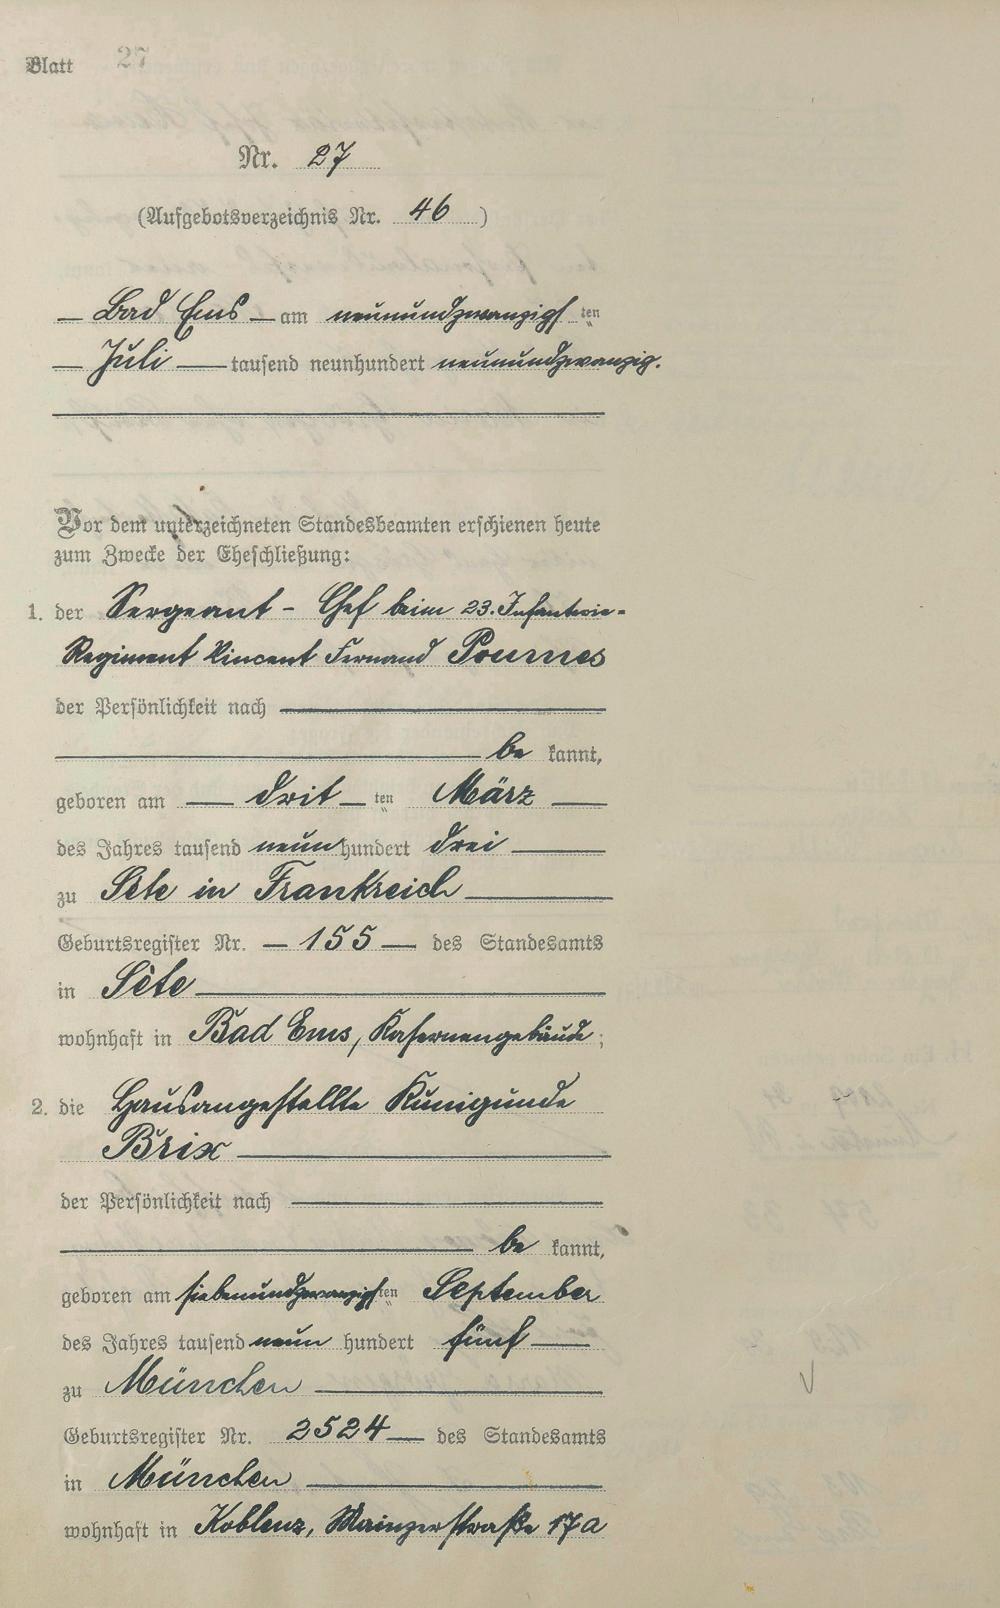 Blatt 27
Nr. 27
(Aufgebotsverzeichnis Nr. 46)
— Bad Ems — am neunundzwanzigsten
— Juli — tausend neunhundert neunundzwanzig.
Vor dem unterzeichneten Standesbeamten erschienen heute
zum Zwecke der Eheschließung:
1. der Sergeant - Chef beim 23. Infanterie-
Regiment Vincent Fernand Poumes
der Persönlichkeit nach
be kannt,
geboren am — dritten März —
des Jahres tausend neunhundert drei —
zu Sète in Frankreich —
Geburtsregister Nr. — 155 — des Standesamts
in Sète —
wohnhaft in Bad Ems, Kasernengebäude;
2. die Hausangestellte Kunigunde
Brix —
der Persönlichkeit nach
be kannt,
geboren am siebenundzwanzigsten September
des Jahres tausend neun hundert fünf —
zu München —
Geburtsregister Nr. 2524 — des Standesamts
in München —
wohnhaft in Koblenz, Mainzerstraße 17a